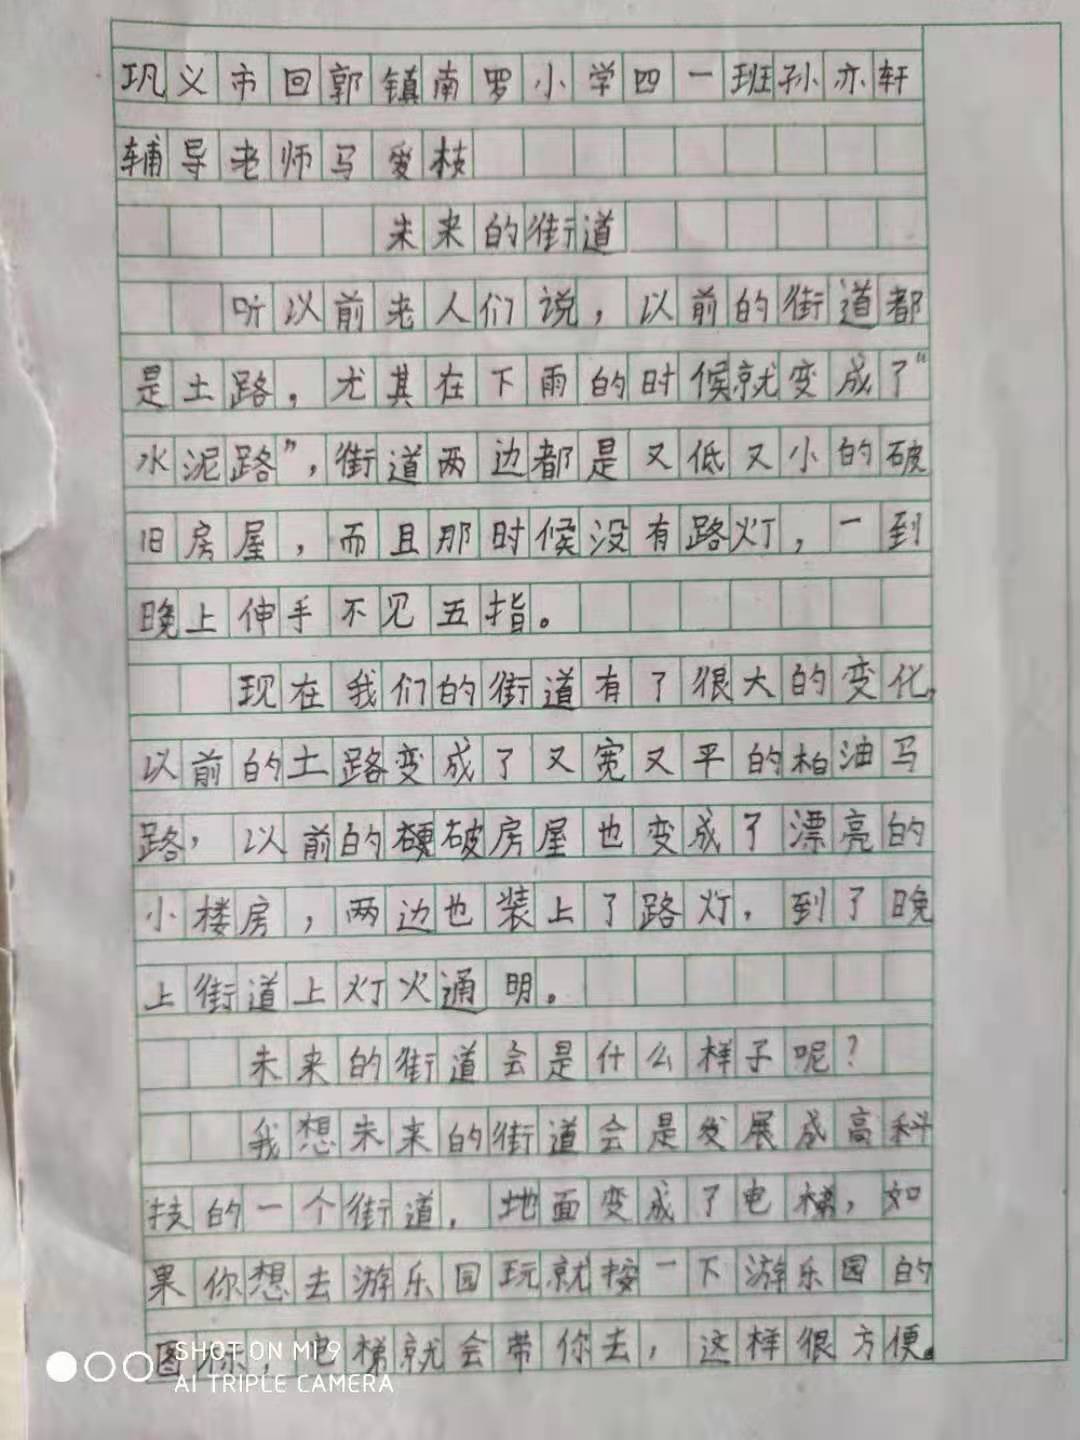 巩义市回郭镇南罗小学四一班孙亦轩
辅导老师马爱枝
未来的街道
听以前老人们说，以前的街道都
是土路，尤其在下雨的时候就变成了“
水泥路”，街道两边都是又低又小的破
旧房屋，而且那时候没有路灯，一到
晚上伸手不见五指。
现在我们的街道有了很大的变化，
以前的土路变成了又宽又平的柏油马
路，以前的破房屋也变成了漂亮的
小楼房，两边也装上了路灯，到了晚
上街道上灯火通明。
未来的街道会是什么样子呢？
我想未来的街道会是发展成高科
技的一个街道，地面变成了电梯，如
果你想去游乐园玩就按一下游乐园的
图你，电梯就会带你去，这样很方便。
SHOT ON MI 9
AI TRIPLE CAMERA